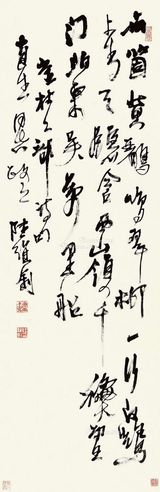 兩箇黄鸝鳴翠柳一行白鷺
上青天窗含西嶺千穐雪
門泊東吴萬里船
杜工部詩
陸儼少